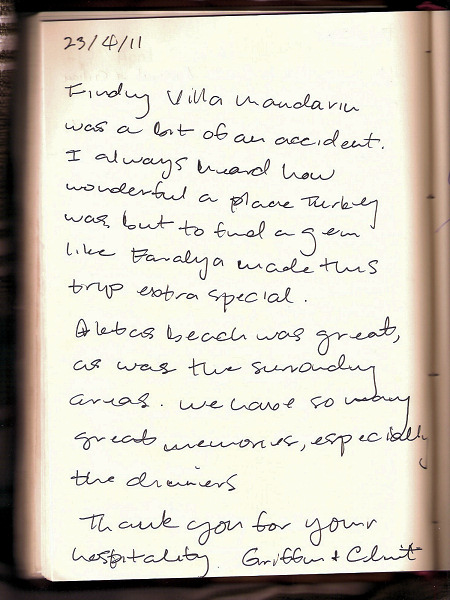 23/4/11
Finding Villa Mandarin
was a bit of an accident.
I always heard how
wonderful a place Turkey
was but to find a gem
like Faralya made this
trip extra special.
Aktas beach was great,
as was the surrounding
areas. We have so many
great memories, especially
the dinners
Thank you for your
hospitality. Griffin + Clint